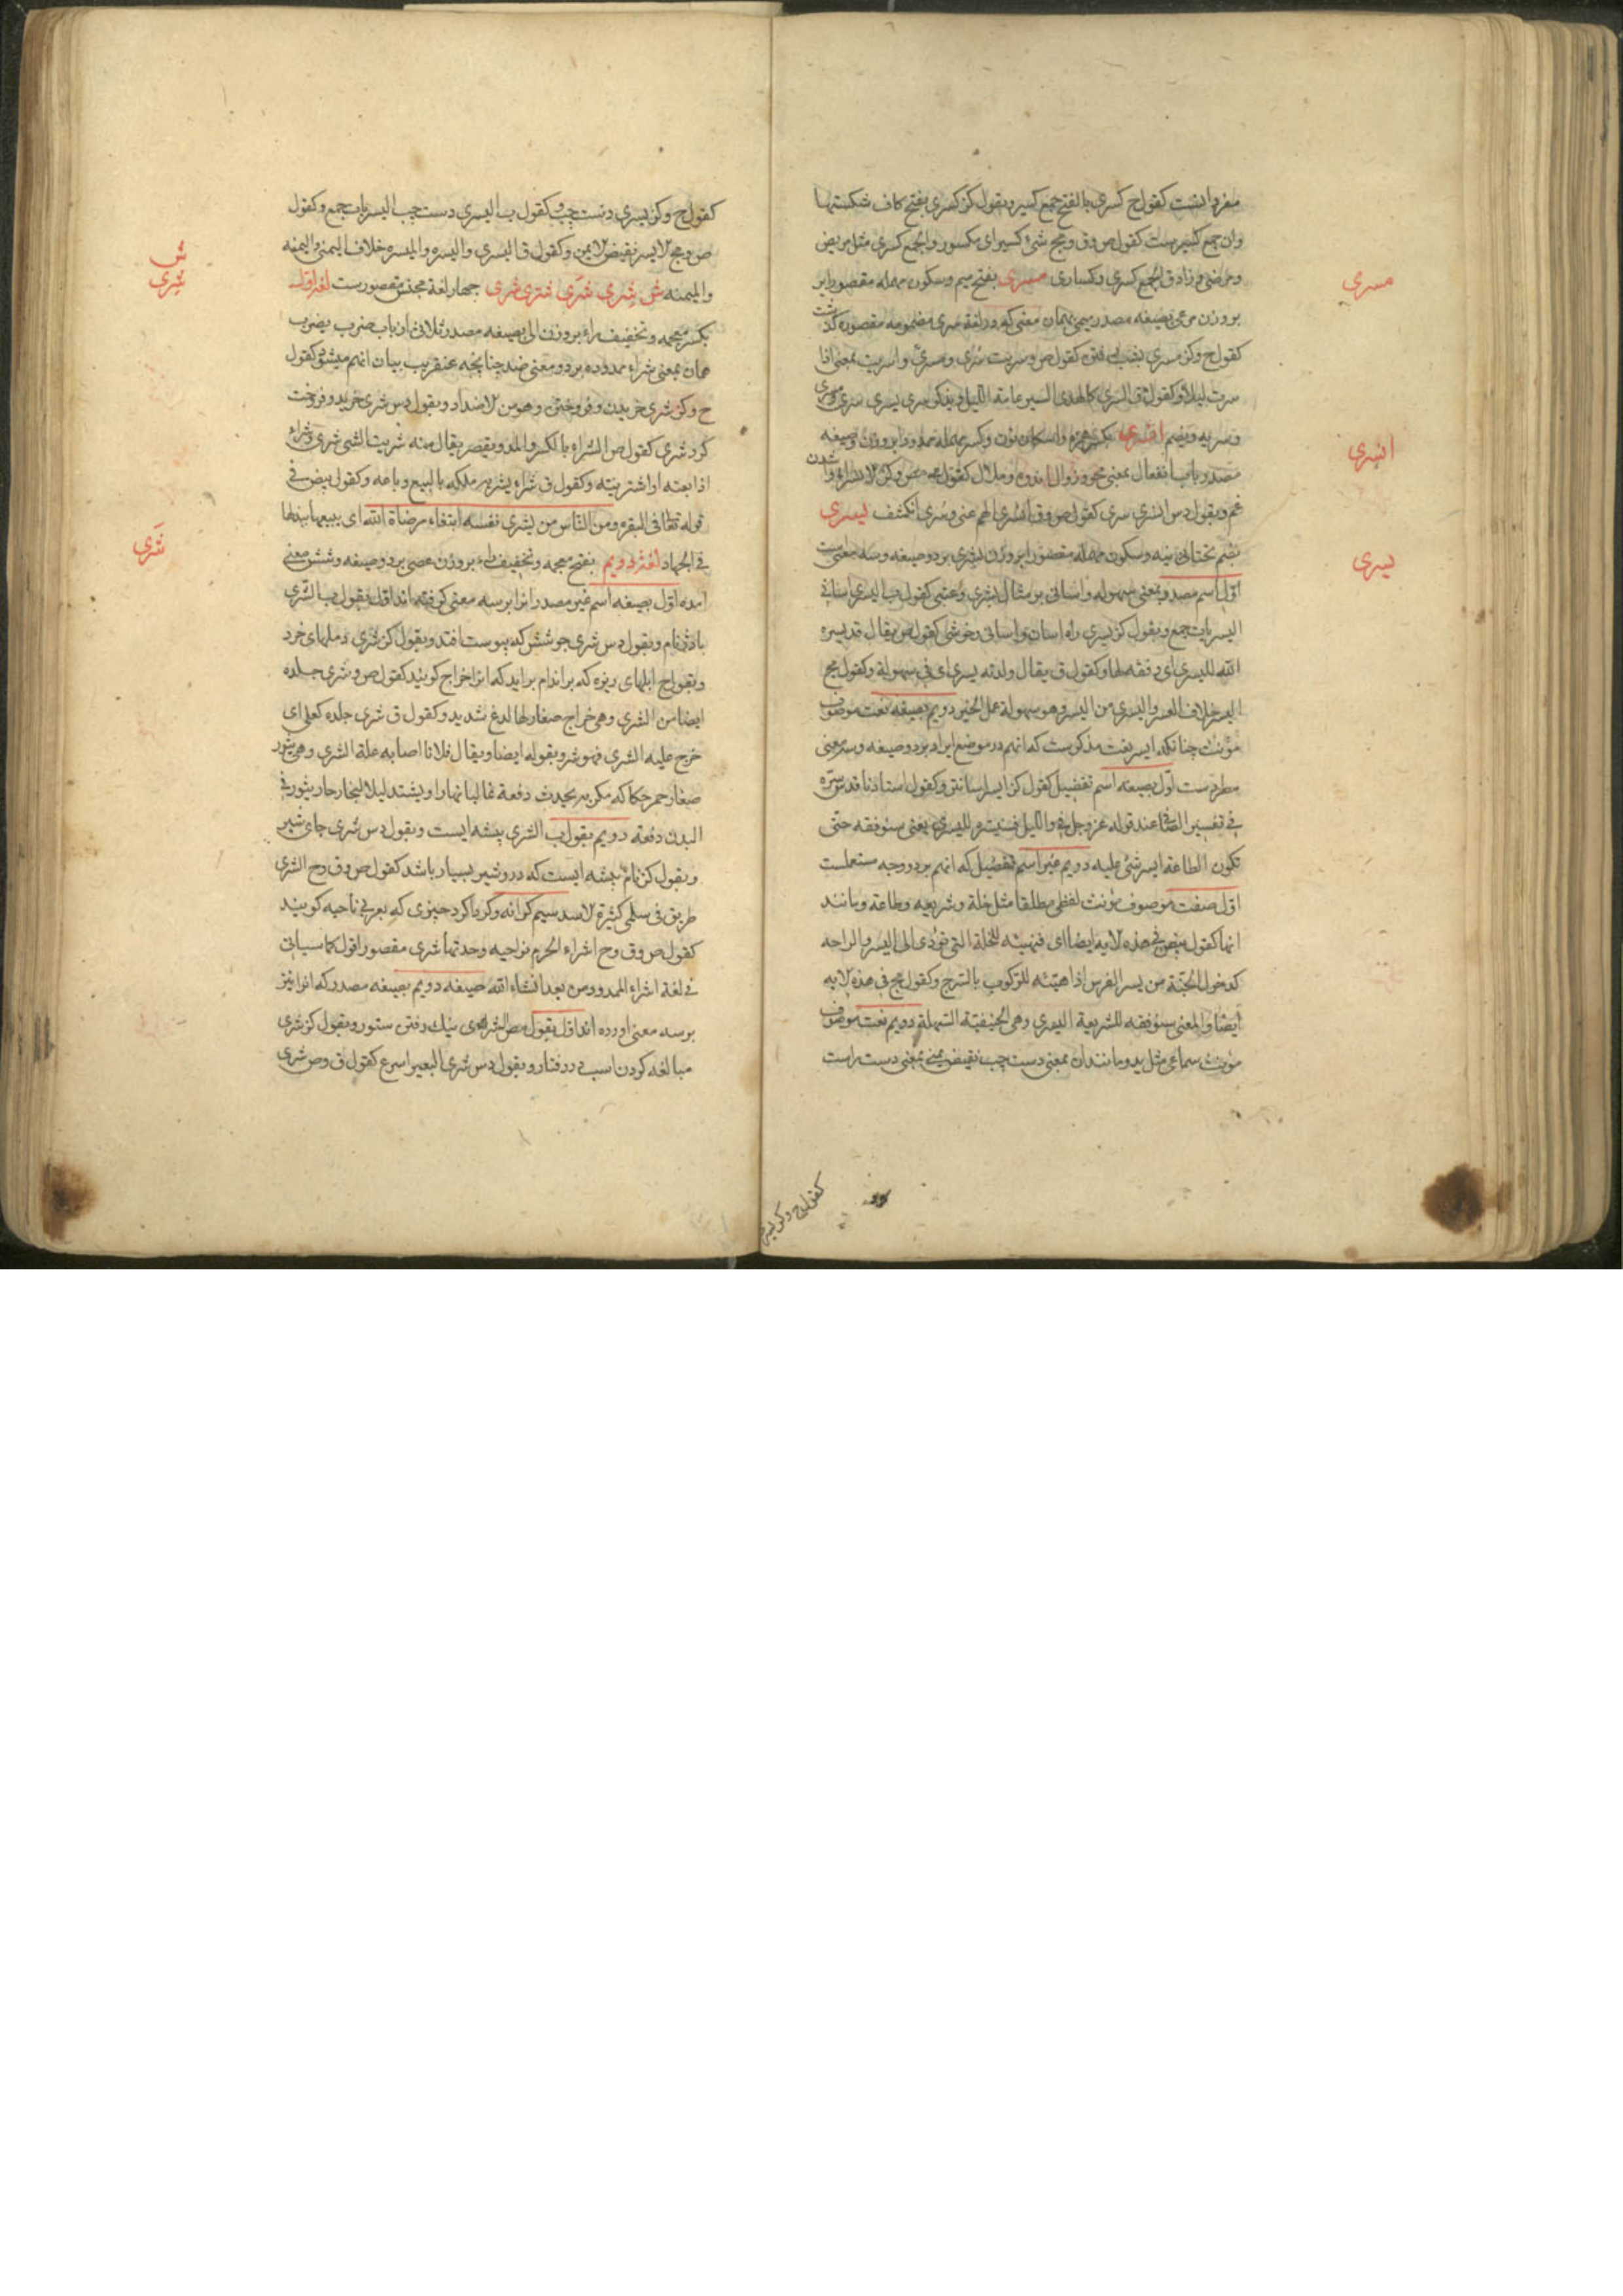 مفرد انست کقول ح کسری بالفتح جمع کسیر و بقول کز کسری بفتح کاف شکستها
وان جمع کسیرست کقول ص و ق و مج شئ کسیر ای مکسور والجمع کسری مثل مریض
ومرضی و زاد ق الجمع کسری و کساری مسری بفتح میم وسکون مهمله مقصور
مسری
بر وزن مرعی بصیغه مصدر میمی بهمان معنی که در لغة سری مضمومه مقصوره کذشت
کقول ح وکز مسری بشب رفتن کقول ص وسریت سری ومسری واسریت بمعنی اذا
سرت لیلا وکقول ق السری کالهدی السیر عامة اللیل ویذکر سری یسری سری ومسری
وسریه ویضم انسری بکسر همزه واسکان نون وکسر مهمله
انسری
مصدر باب انفعال بمعنی محو و زوال اندوه وملال کقول
غم وبقول دس انسری سری کقول ص و ق انسری الهم عنی وسری انکشف یسری
بضم تحتانی وسکون مهمله مقصور بر وزن بشری بر دو صیغه وسه معنی ست
یسری
اول اسم مصدر بمعنی سهوله واسانی بر مثال بشری وعتبی کقول ب الیسری اسانی
الیسریات جمع وبقول کز یسری راه اسان واسانی وخوشی کقول ص یقال قد یسره
الله للیسری ای وفقه لها وکقول ق یقال ولدته یسری ای فی سهولة وکقول مج
الیسر خلاف العسر والیسری من الیسر وهو سهولة عمل الخیر دویم بصیغه نعت موصوف
مؤنث چنانکه ایسر نعت مذکرست که انهم در موضع ایراد بر دو صیغه وسه معنی
مطردست اول بصیغه اسم تفضیل کقول کز ایسر اسانتر وکقول استادنا قدس سره
فی تفسیر الصافی عند قوله عز وجل فی واللیل فسنیسره للیسری یعنی سنوفقه حتی
تکون الطاعة ایسر شئ علیه دویم غیر اسم تفضیل که انهم بر دو وجه مستعملست
اول صفت موصوف مؤنث لفظی مطلقا مثل خلة وشریعه وطاعة ومانند
انها کقول بیض فی هذه الایه ایضا ای فنهیئه للخلة التی تؤدی الی الیسر والراحه
کدخول الجنة من یسر الفرس اذا هیئه للرکوب بالسرج وکقول مج فی هذه الایه
ایضا والمعنی سنوفقه للشریعة الیسری وهی الحنیفیة السهلة دویم نعت موصوف
مؤنث سماعی مثل ید ومانند ان بمعنی دست چپ نقیض یمنی بمعنی دست راست
کقول ح وکز یسر
کقول ح وکز یسری دست چپ وکقول ب الیسری دست چپ الیسریات جمع وکقول
ص و مج الایسر نقیض الایمن وکقول ق الیسری والیسره والمیسره خلاف الیمنی والیمنه
والمیمنه ش شری شری شری شری چهار لغة مجنس مقصورست لغة اول
ش
شری
بکسر معجمه وتخفیف راء بر وزن الی بصیغه مصدر ثلاثی از باب ضرب یضرب
همان بمعنی شراء ممدوده بر دو معنی ضد چنانچه عنقریب بیان انهم میشود کقول
ح وکز شری خریدن وفروختن وهو من الاضداد وبقول دس شری خرید وفروخت
کرد شری کقول ص الشراء بالکسر والمد ویقصر یقال منه شریت الشئ شری وشراء
اذا بعته او اشتریته وکقول ق شراه یشریه ملکه بالبیع وباعه وکقول بیض فی
قوله تعالی فی البقره ومن الناس من یشری نفسه ابتغاء مرضاة الله ای یبیعها یبذلها
فی الجهاد لغة دویم بفتح معجمه وتخفیف راء بر وزن عصی بر دو صیغه وشش معنی
شری
امده اول بصیغه اسم غیر مصدر انرا بر سه معنی کرفته اند اول بقول ب الشری
بادژنام وبقول دس شری جوشش که بپوست افتد وبقول کز شری دملهای خرد
وبقول ح ابلهای ریزه که بر اندام براید که انرا خراج کویند کقول ص وشری جلده
ایضا من الشری وهی خراج صغار لها لدغ شدید وکقول ق شری جلده کعلی ای
خرج علیه الشری فهو شر وبقوله ایضا ویقال فلانا اصابه علة الشری وهی بثور
صغار حمر حکاکه مکربه یحدث دفعة غالبا نهارا ویشتد لیلا لبخار حار یثور فی
البدن دفعة دویم بقول ب الشری بیشه ایست وبقول دس شری جای شیر
وبقول کز نام بیشه ایست که درو شیر بسیار باشد کقول ص و ق و ح الشری
طریق فی سلمی کثیرة الاسد سیم کرانه وکرداکرد چیزی که بعربی ناحیه کویند
کقول ص و ق و ح اشراء الحرم نواحیه وحدتها شری مقصور اقول کما سیاتی
فی لغة اشراء الممدود من بعد انشاء الله صیغه دویم بصیغه مصدر که انرا نیز
بر سه معنی اورده اند اول بقول مص الشری نیک رفتن ستور وبقول کز شری
مبالغه کردن اسب در رفتار وبقول دس شری البعیر اسرع کقول ق و ص شری